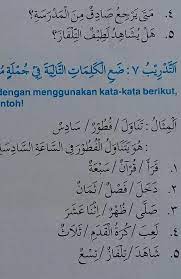 ٤. مَتَى يَرْجِعُ صَادِقٌ مِنَ الْمَدْرَسَةِ؟
٥. هَلْ يُشَاهِدُ لَطِيْفٌ التِّلْفَازَ؟
اَلتَّدْرِيْبُ ٧ : ضَعِ الْكَلِمَاتِ التَّالِيَةَ فِيْ جُمْلَةٍ
dengan menggunakan kata-kata berikut,
ontoh!
اَلْمِثَالُ : تَنَاوَلَ / فُطُوْرٌ / سَادِسٌ
: هُوَ يَتَنَاوَلُ الْفُطُوْرَ فِي السَّاعَةِ السَّادِسَةِ
١. قَرَأَ / قُرْآنٌ / سَبْعَةٌ
٢. دَخَلَ / فَصْلٌ / ثَمَانٌ
٣. صَلَّى / ظُهْرٌ / اِثْنَا عَشَرَ
٤. لَعِبَ / كُرَةُ الْقَدَمِ / ثَلَاثٌ
٥. شَاهَدَ / تِلْفَازٌ / تِسْعٌ